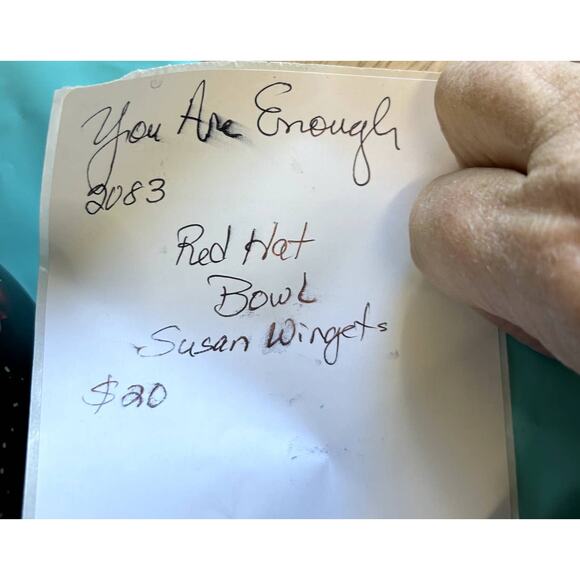 You Are Enough
2083
Red Hat
Bowl
Susan Wingets
$20